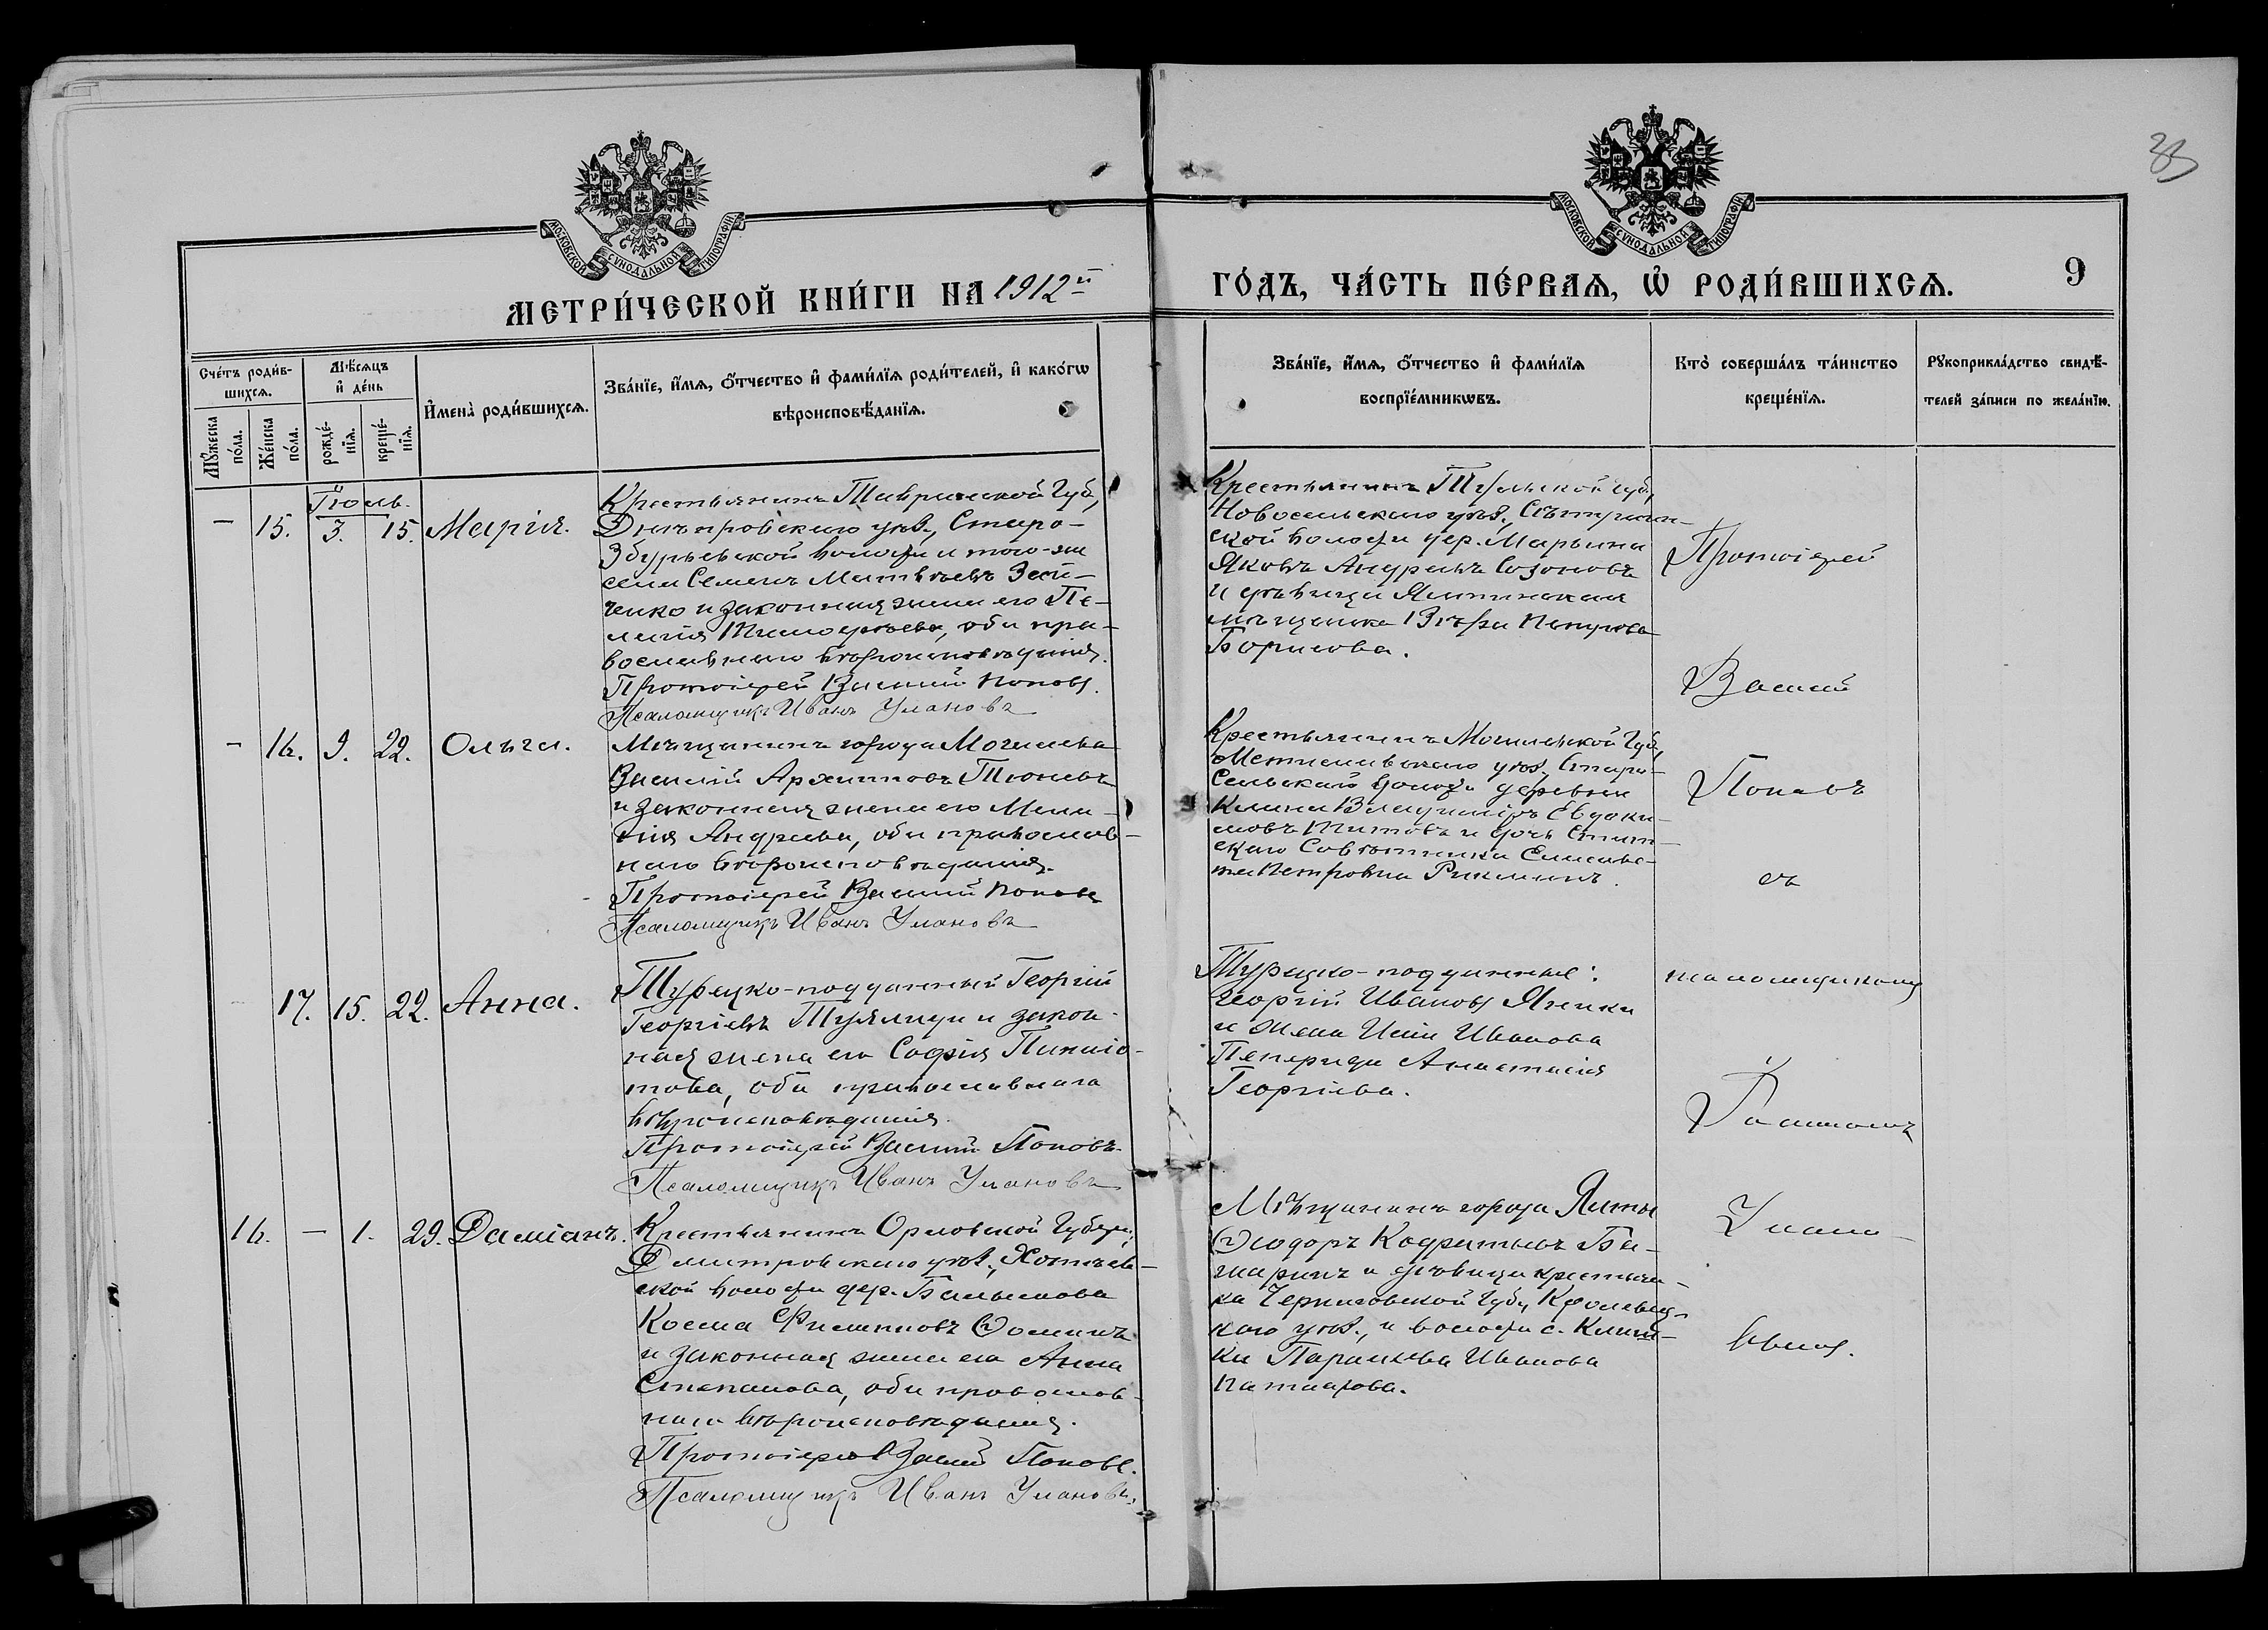 33
МОСКОВСКОЙ СѴНОДАЛЬНОЙ ТИПОГРАФІИ
МОСКОВСКОЙ СѴНОДАЛЬНОЙ ТИПОГРАФІИ
МЕТРИ́ЧЕСКОЙ КНИ́ГИ НА 1912й
ГО́ДЪ, ЧА́СТЬ ПЕ́РВАѦ, Ѡ҆ РОДИ́ВШИХСѦ.
9
Сче́тъ роди́в-
шихсѧ.
Мꙋ́жеска по́ла.
Же́нска по́ла.
Мѣ́сѧцъ и҆ де́нь
рожде́-
нїѧ.
креще́-
нїѧ.
И҆мена̀ роди́вшихсѧ.
Зва́нїе, и҆́мѧ, ѻ҆́тчество и҆ фами́лїѧ роди́телей, и҆ како́гѡ
вѣроисповѣ́данїѧ.
Зва́нїе, и҆́мѧ, ѻ҆́тчество и҆ фами́лїѧ
воспрїе́мникѡвъ.
Кто̀ соверша́лъ та́инство
креще́нїѧ.
Рꙋкоприкла́дство свидѣ́-
телей за́писи по жела́нїю.
Іюль.
— 15. 3. 15. Марія.
Крестьянинъ Таврической Губ.,
Днѣпровскаго уѣз., Старо-
Збурьевской волости и того-же
села Семенъ Матвѣевъ
и законная жена его Пе-
лагія Тимофеева, оба пра-
вославнаго вѣроисповѣданія.
Протоіерей Василій Поповъ.
Псаломщикъ Иванъ Улановъ
Крестьянинъ Тульской губ.,
Новосельскаго уѣз.,
ской волости дер. Марьина
Яковъ Андреевъ Созоновъ
и дѣвица Ялтинская
мѣщанка Вѣра Петрова
Борисова.
— 16. 9. 22. Ольга.
Мѣщанинъ города Могилева
Василій Архиповъ Тюневъ
и законная жена его Мела-
нія Андреева, оба православ-
наго вѣроисповѣданія.
Протоіерей Василій Поповъ
Псаломщикъ Иванъ Улановъ
Крестьянинъ Могилевской Губ.,
Мстиславскаго уѣз., Старо-
Сельской волости деревни
Клими Владиміръ Евдоки-
мовъ Титовъ и дочь Стат-
скаго Совѣтника Елисаве-
та Петровна Рикманъ.
17. 15. 22. Анна.
Турецко-подданный Георгій
Георгіевъ Туялиди и закон-
ная жена его Софія Панаіо-
това, оба православнаго
вѣроисповѣданія.
Протоіерей Василій Поповъ
Псаломщикъ Иванъ Улановъ
Турецко-подданные:
Георгій Ивановъ
и жена Ильи Иванова
Анастасія
Георгіева.
16. — 1. 29. Даміанъ.
Крестьянинъ Орловской Губерн.,
Дмитровскаго уѣз.,
ской волости дер.
Косма Филипповъ Ѳоминъ
и законная жена его Анна
Степанова, оба православ-
наго вѣроисповѣданія.
Протоіерей Василій Поповъ.
Псаломщикъ Иванъ Улановъ
Мѣщанинъ города Ялты
Ѳеодоръ Кодратьевъ Ба-
шаринъ и дѣвица крестьян-
ка Черниговской Губ., Кролевец-
каго уѣз., и волости с. Клиш-
ки Параскева Иванова
Протоіерей
Василій
Поповъ
съ
псаломщикомъ
Іоанномъ
Улано-
вымъ.